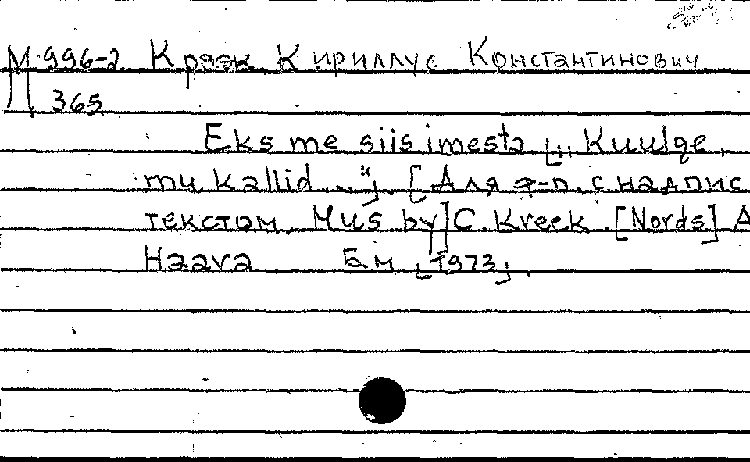 М 996-2 Крээк Кириллус Константинович
П 365
Eks me siis imesta [„Kuulge,
mu kallid ..."]. [Для ф-п. с надпис
текстом. Mus by] C. Kreek. [Nords] A
Haava Б.м. [1973].